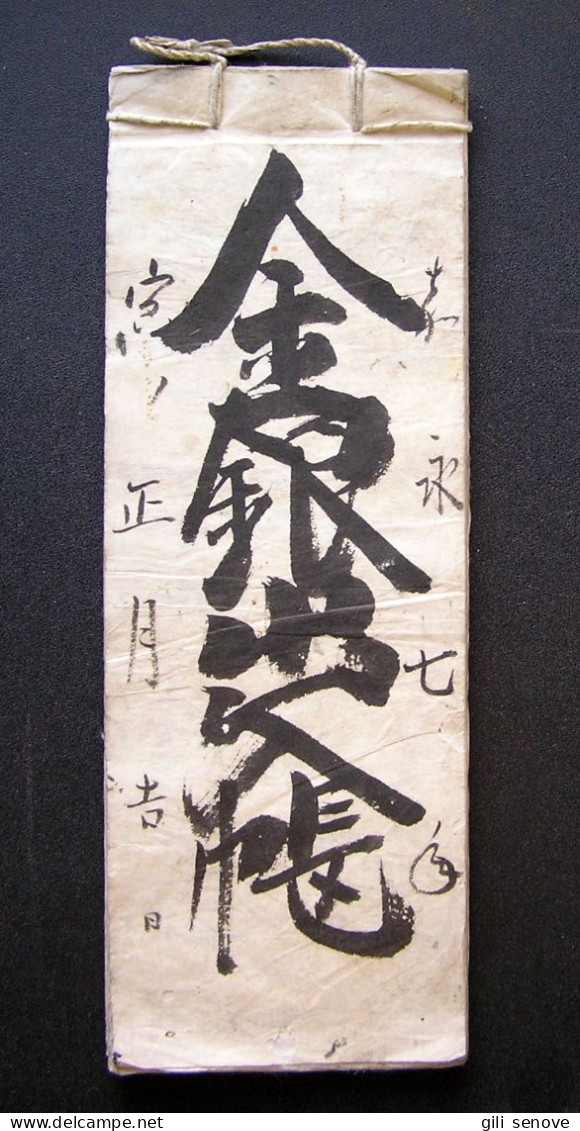 嘉永七年
金銀出入帳
寅ノ正月吉日
gili senove